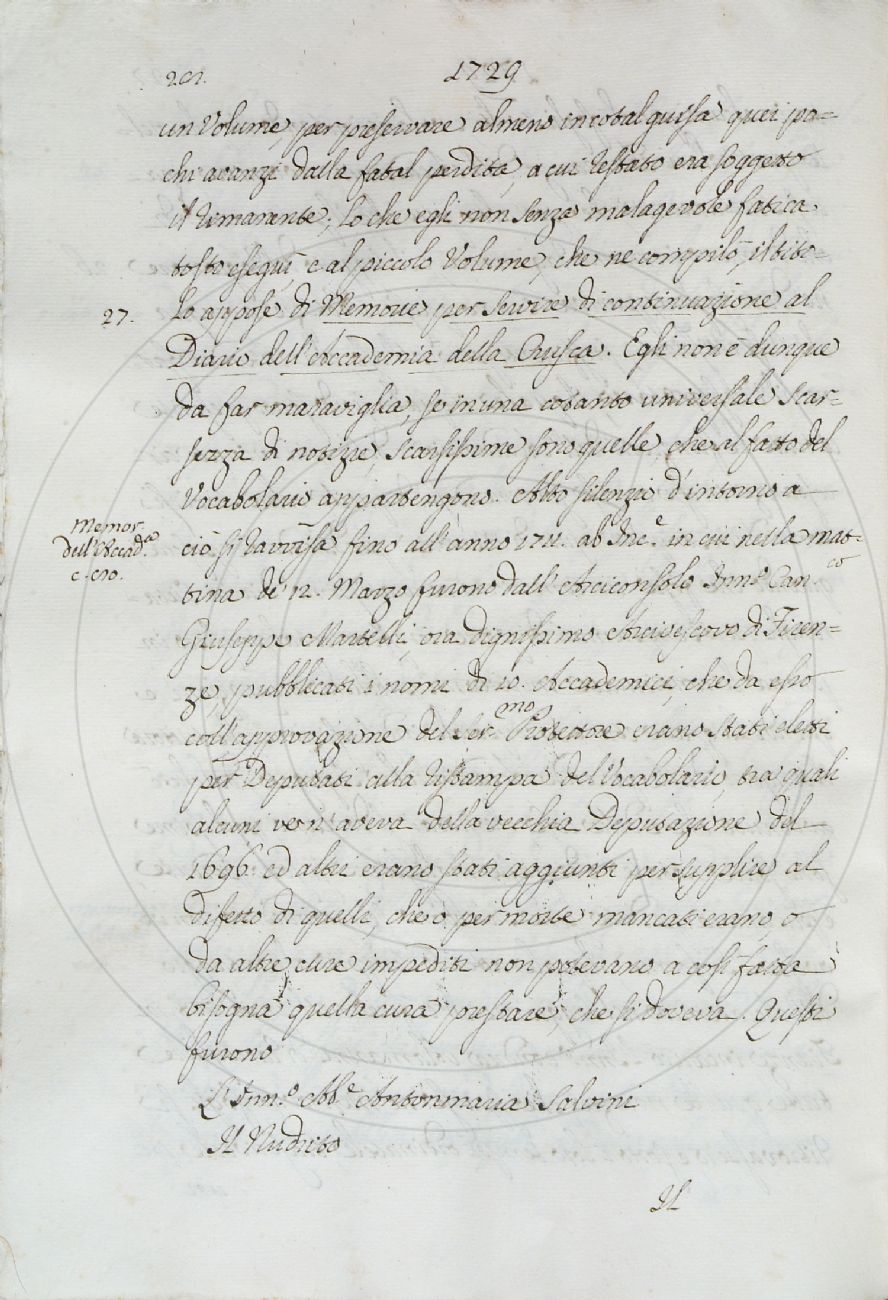 1729
un Volume, per preservare almeno in cotal guisa quei po=
chi avanzi dalla fatal perdita, a cui restato era soggetto
il rimanente; lo che egli non senza malagevole fatica
tosto eseguì, e al piccolo Volume, che ne compilò, il tito=
27. lo appose di Memorie per servire di continuazione al
Diario dell'Accademia della Crusca. Egli non è dunque
da far maraviglia, se in una cotanto universale scar=
sezza di notizie, scarsissime sono quelle, che al fatto del
Vocabolario appartengono. Alto silenzio d'intorno a
Memor.
dell'Accad.a
c. 510.
ciò si ravvisa fino all'anno 1711. ab Inc.e in cui nella mat=
tina de' 12. Marzo furono dall'Arciconsolo Inn.o Can.co
Giuseppe Martelli, ora dignissimo Arcivescovo di Firen=
ze, pubblicati i nomi di 10. Accademici, che da esso
coll'approvazione del Ser.mo Protettore erano stati eletti
per Deputati alla ristampa del Vocabolario, tra quali
alcuni ve n'aveva della vecchia Deputazione del
1696. ed altri erano stati aggiunti per supplire al
difetto di quelli, che o per morte mancati erano o
da altre cure impediti non potevano a così fatta
bisogna quella cura prestare, che si doveva. Questi
furono
L'Inn.o Ab.e Antonmaria Salvini
Il Nudrito
Il